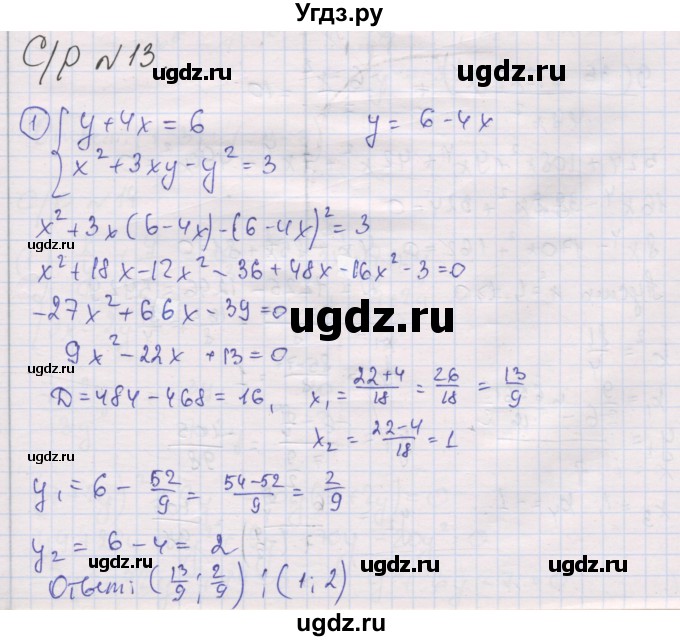 Угдз.ру
С/р №13
ugdz.ru
1 { y + 4x = 6    y = 6 - 4x
x² + 3xy - y² = 3
ugdz.ru ugdz.ru
x² + 3x(6 - 4x) - (6 - 4x)² = 3
ugdz.ru
x² + 18x - 12x² - 36 + 48x - 16x² - 3 = 0
-27x² + 66x - 39 = 0
ugdz.ru
9x² - 22x + 13 = 0
ugdz.ru
D = 484 - 468 = 16, x₁ = 22+4/18 = 26/18 = 13/9
x₂ = 22-4/18 = 1
ugdz.ru
y₁ = 6 - 52/9 = 54-52/9 = 2/9
y₂ = 6 - 4 = 2
ugdz.ru ugdz.ru ugdz.ru
Ответ: (13/9; 2/9); (1; 2)
ugdz.ru ugdz.ru
Угдз.ру